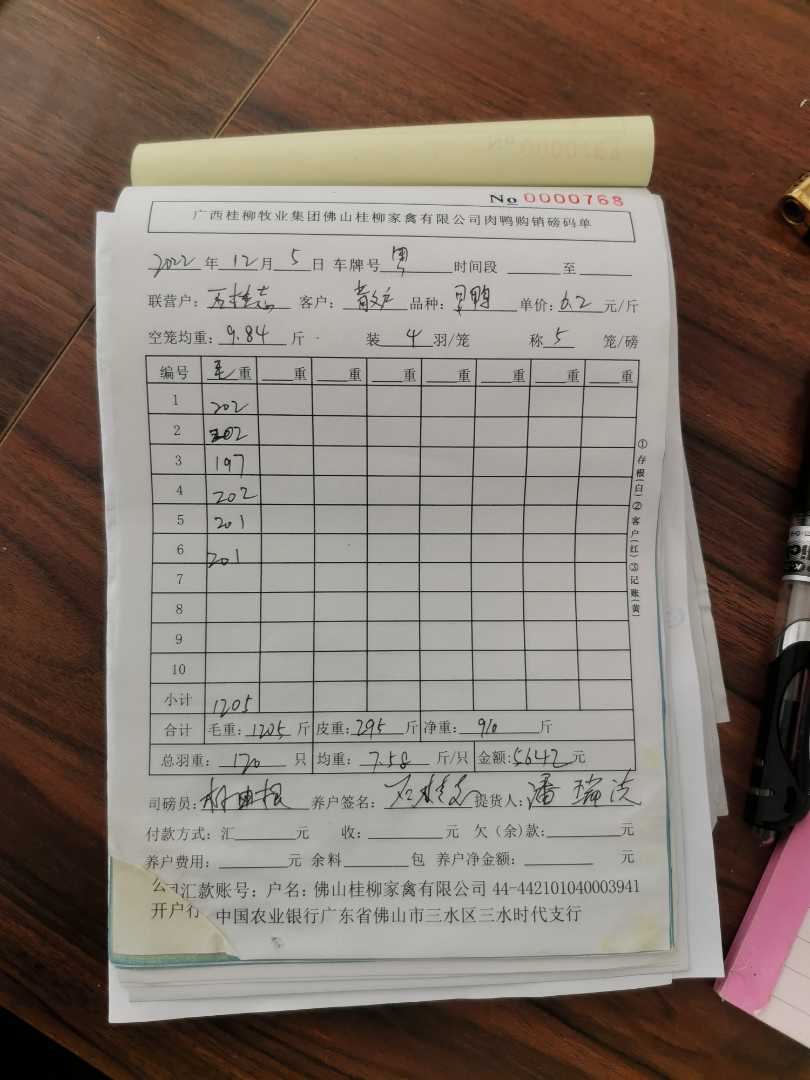 No 0000768
广西桂柳牧业集团佛山桂柳家禽有限公司肉鸭购销磅码单
2022年12月5日 车牌号 粤 时间段 至
联营户: 石桂志 客户: 散户 品种: 鸭 单价: 6.2 元/斤
空笼均重: 9.84 斤 装 4 羽/笼 称 5 笼/磅
编号 毛重 重 重 重 重 重 重 重
1 202
2 202
3 197
4 202
5 201
6 201
7
8
9
10
小计 1205
合计 毛重: 1205 斤 皮重: 295 斤 净重: 910 斤
总羽重: 120 只 均重: 7.58 斤/只 金额: 5642 元
司磅员: 养户签名: 提货人: 潘瑞
付款方式: 汇 元 收: 元 欠(余)款: 元
养户费用: 元 余料 包 养户净金额: 元
汇款账号: 户名: 佛山桂柳家禽有限公司 44-442101040003941
开户行 中国农业银行广东省佛山市三水区三水时代支行
①存根(白)②客户(红)③记账(黄)